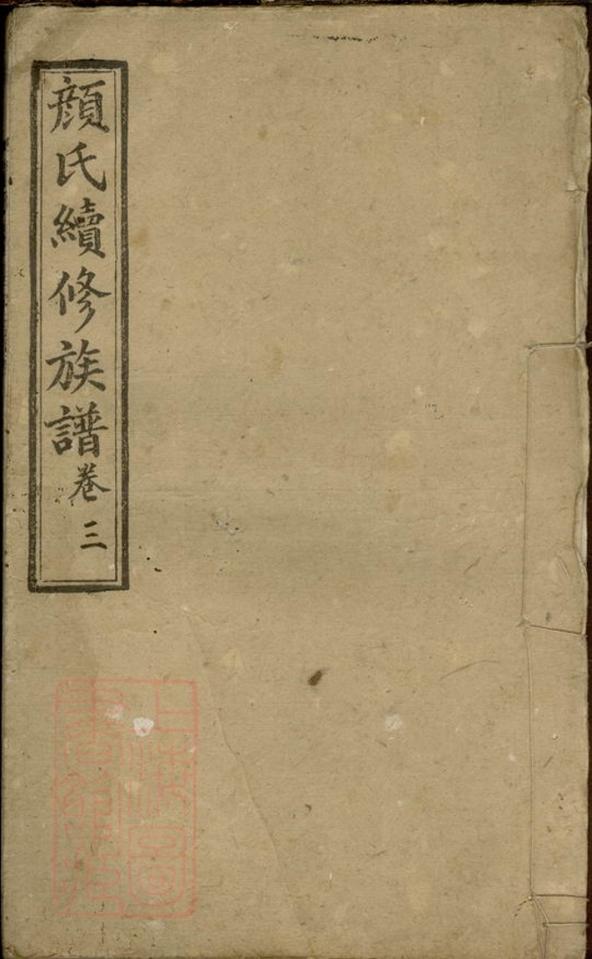 顏氏續修族譜卷三